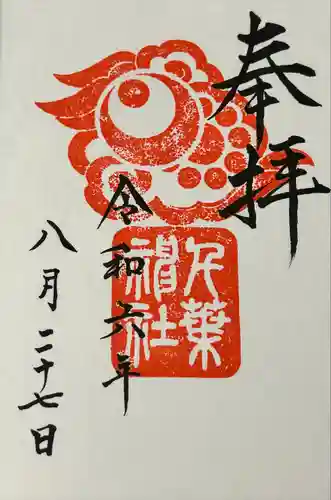 奉拝
久葉神社
令和六年
八月二十七日